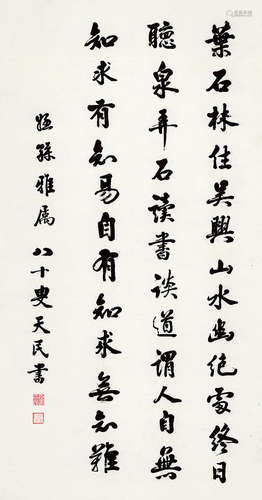 葉石林住吴興山水幽絕處終日
聽泉弄石讀書談道謂人自無
知求有知易自有知求無知難
孫雅属 八十叟天民書